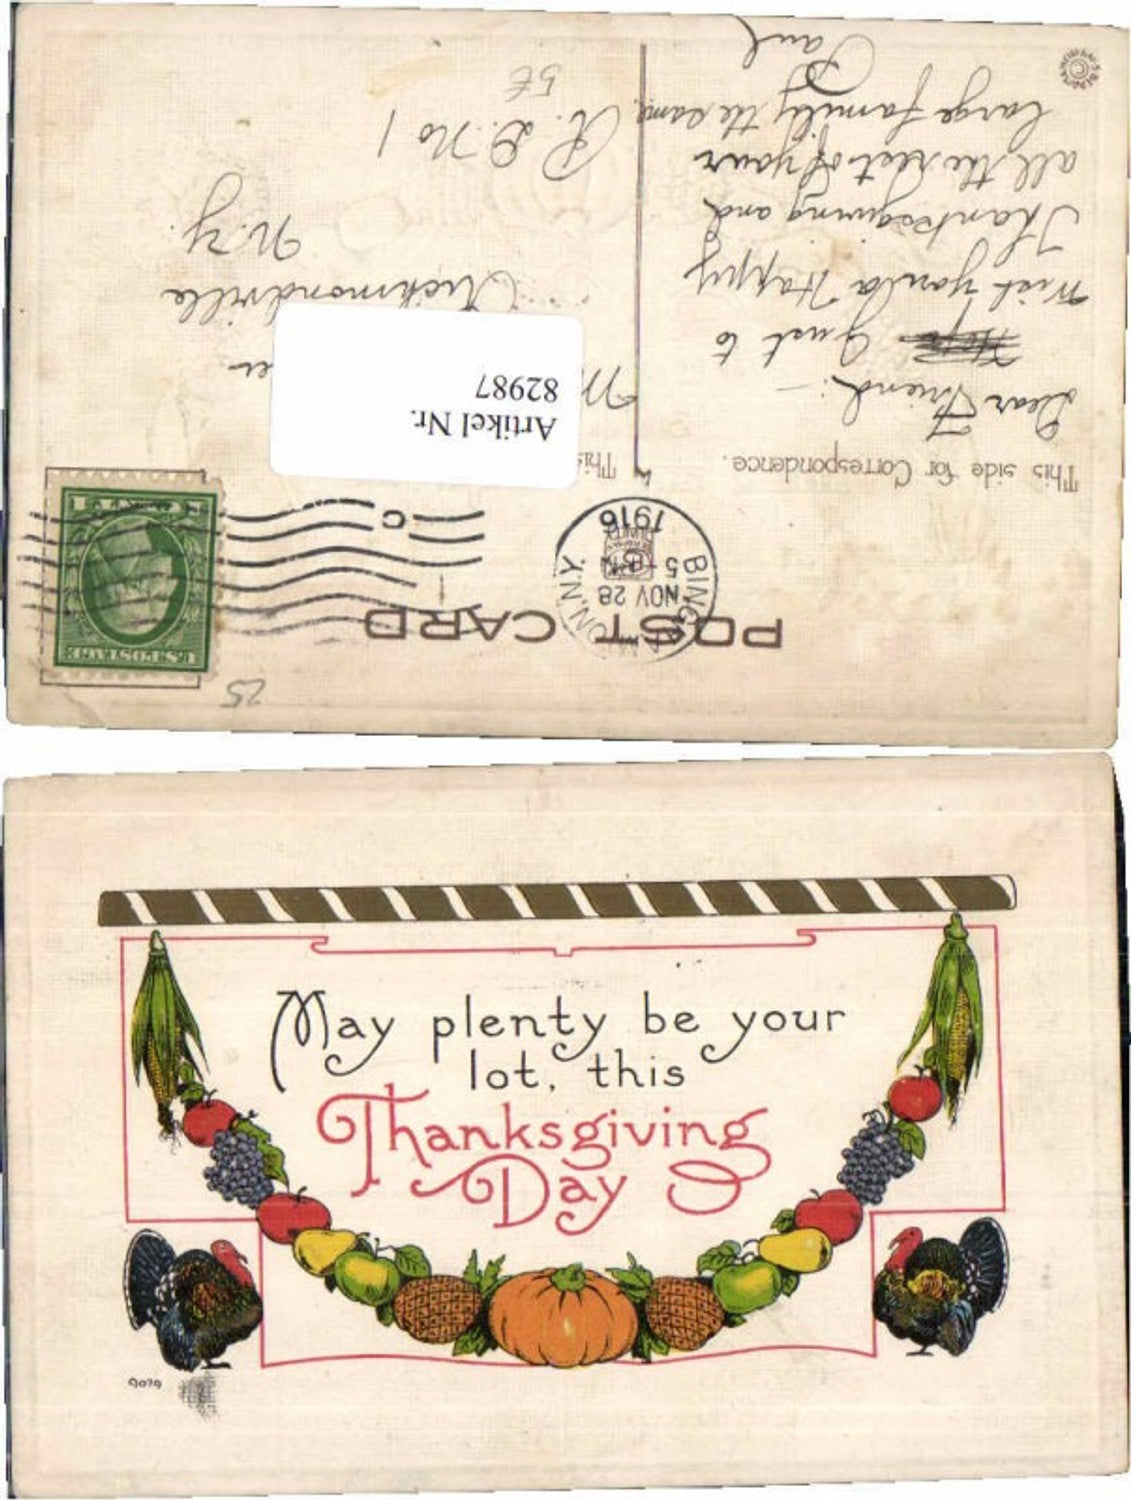 POST CARD
BINGHAMTON, N.Y.
NOV 28
5
1916
C
U.S. POSTAGE
25
This side for Correspondence.
This
Artikel Nr.
82987
Dear Friend:-
Just to
wish you a Happy
Thanksgiving and
all the rest of your
large family the same.
Paul
M
er
Richmondville
N.Y.
R. D. No 1
May plenty be your
lot, this
Thanksgiving
Day
9079